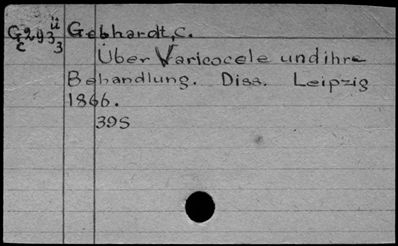 G 293 ü Gebhardt, C.
E 3
Über Varicocele und ihre
Behandlung. Diss. Leipzig
1866.
39S